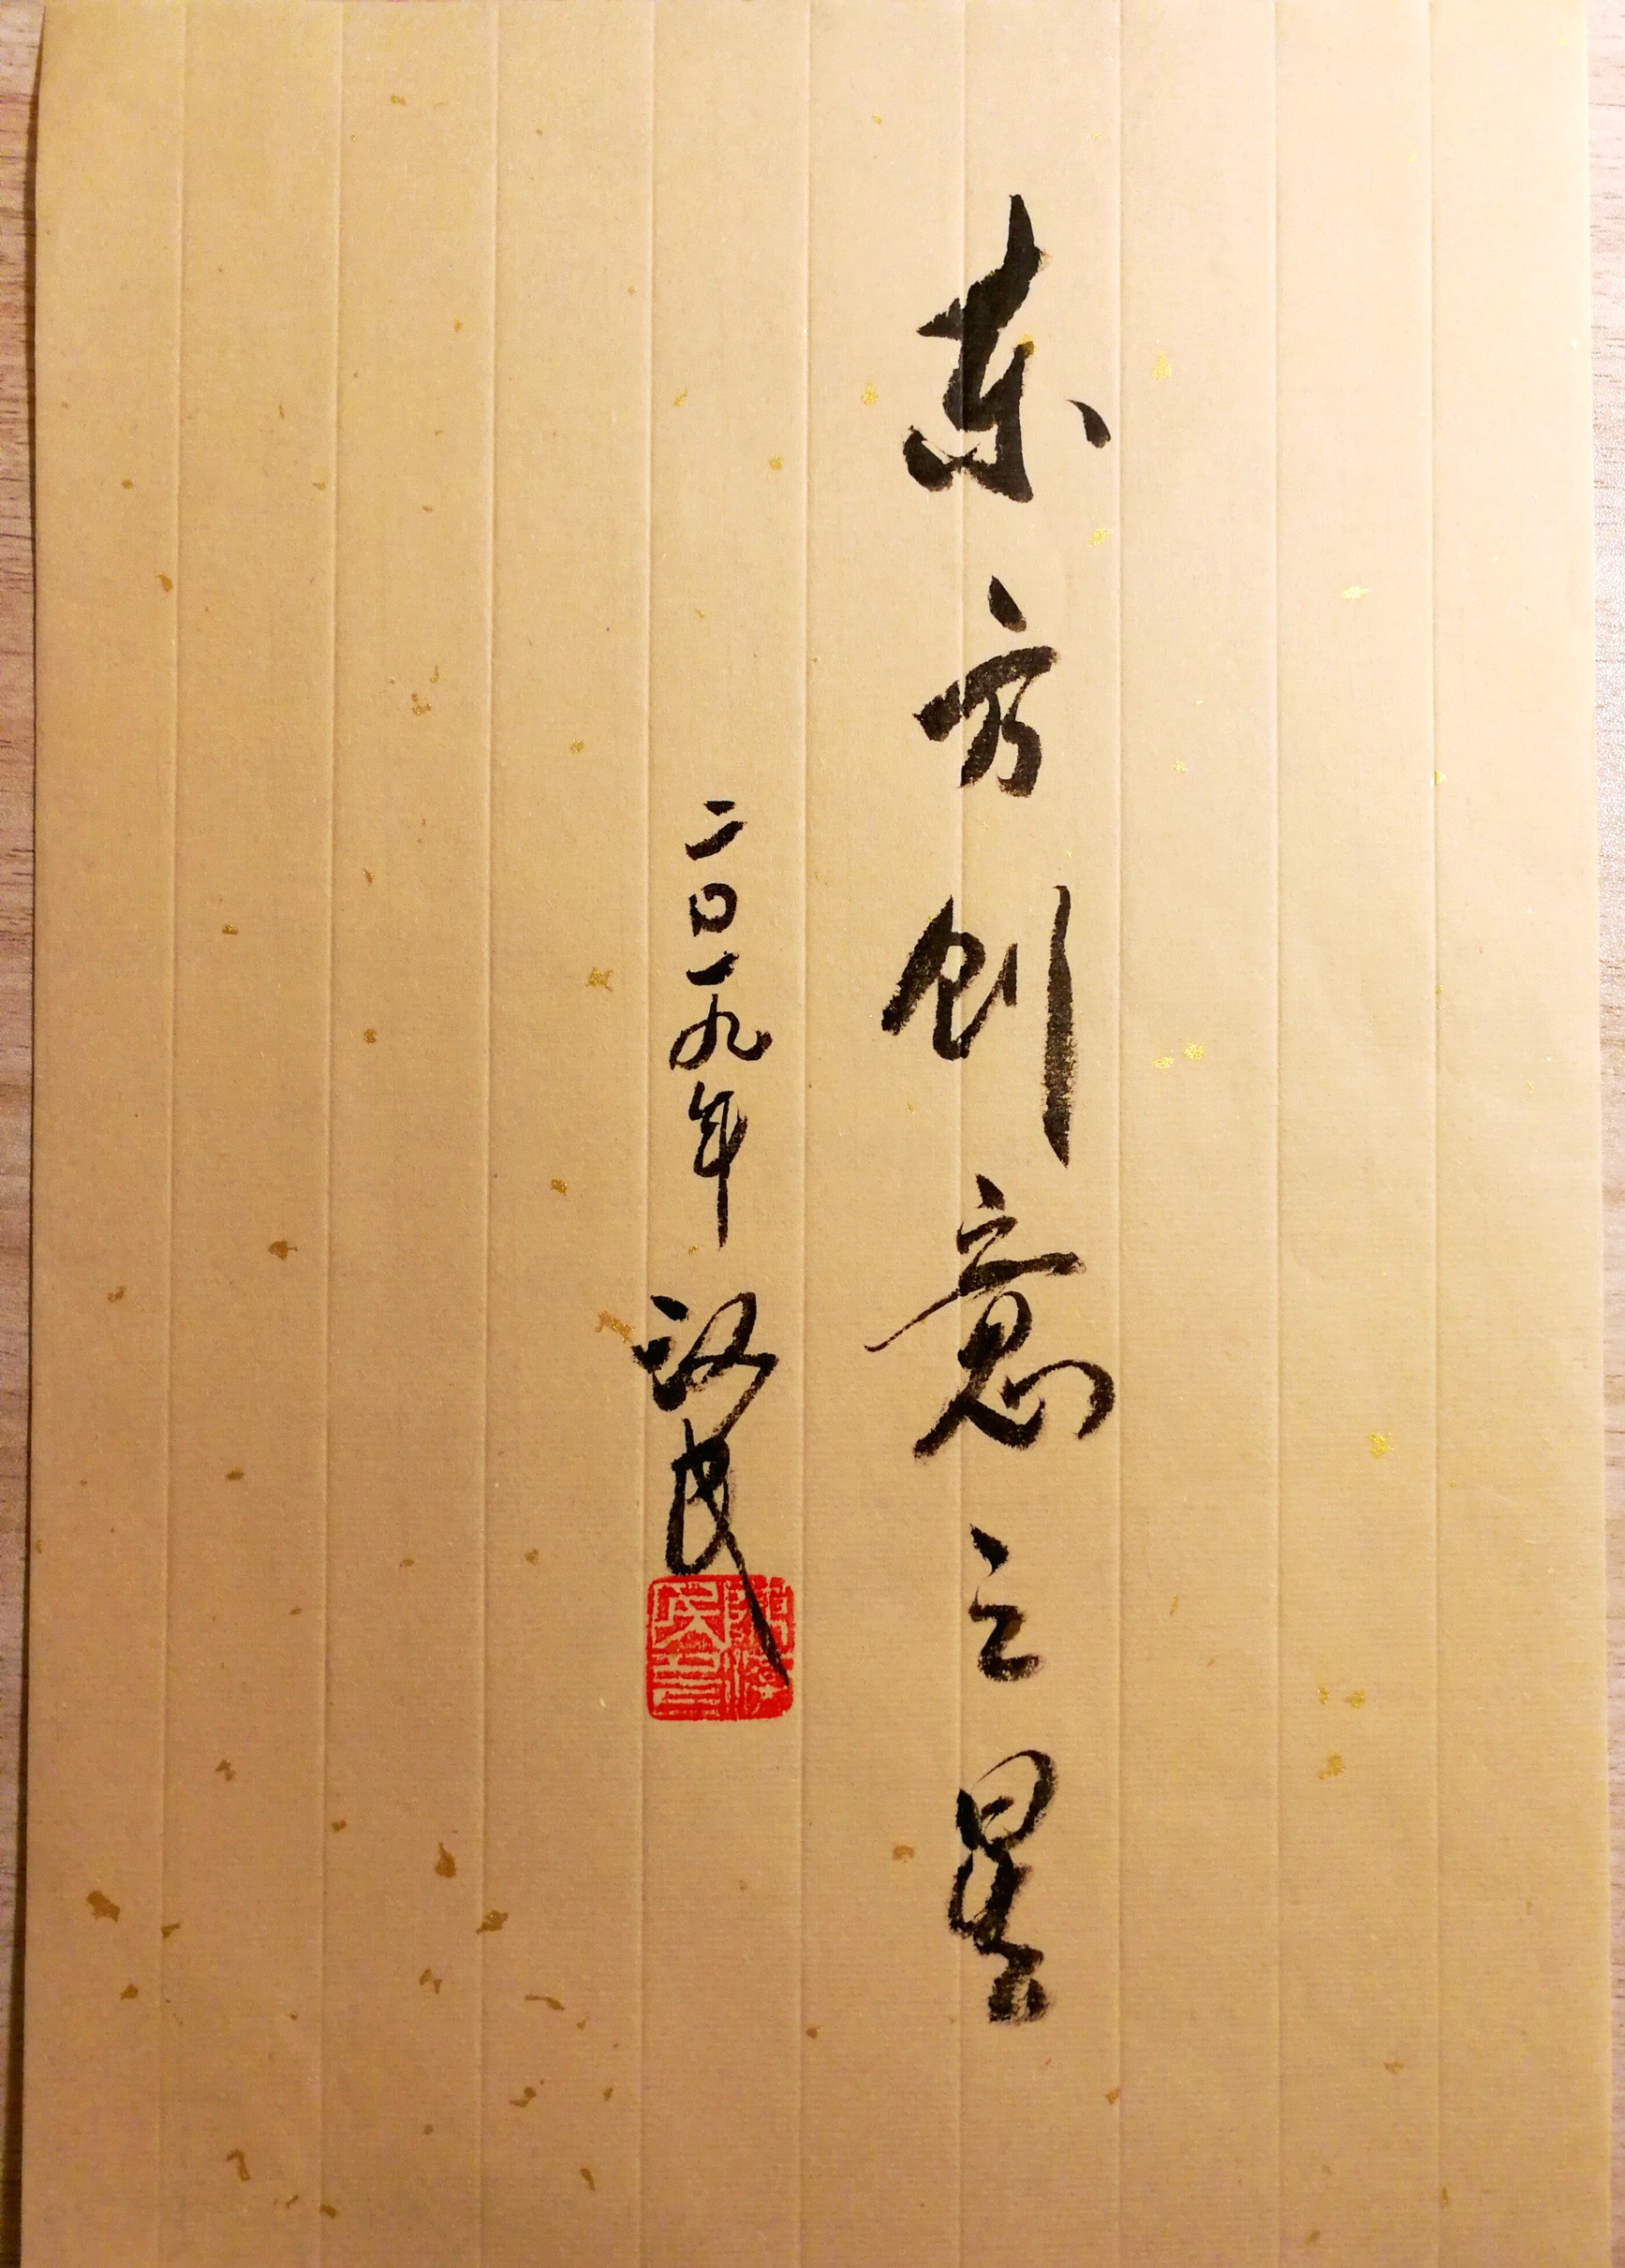 东方创意之星
二〇一九年 汉民